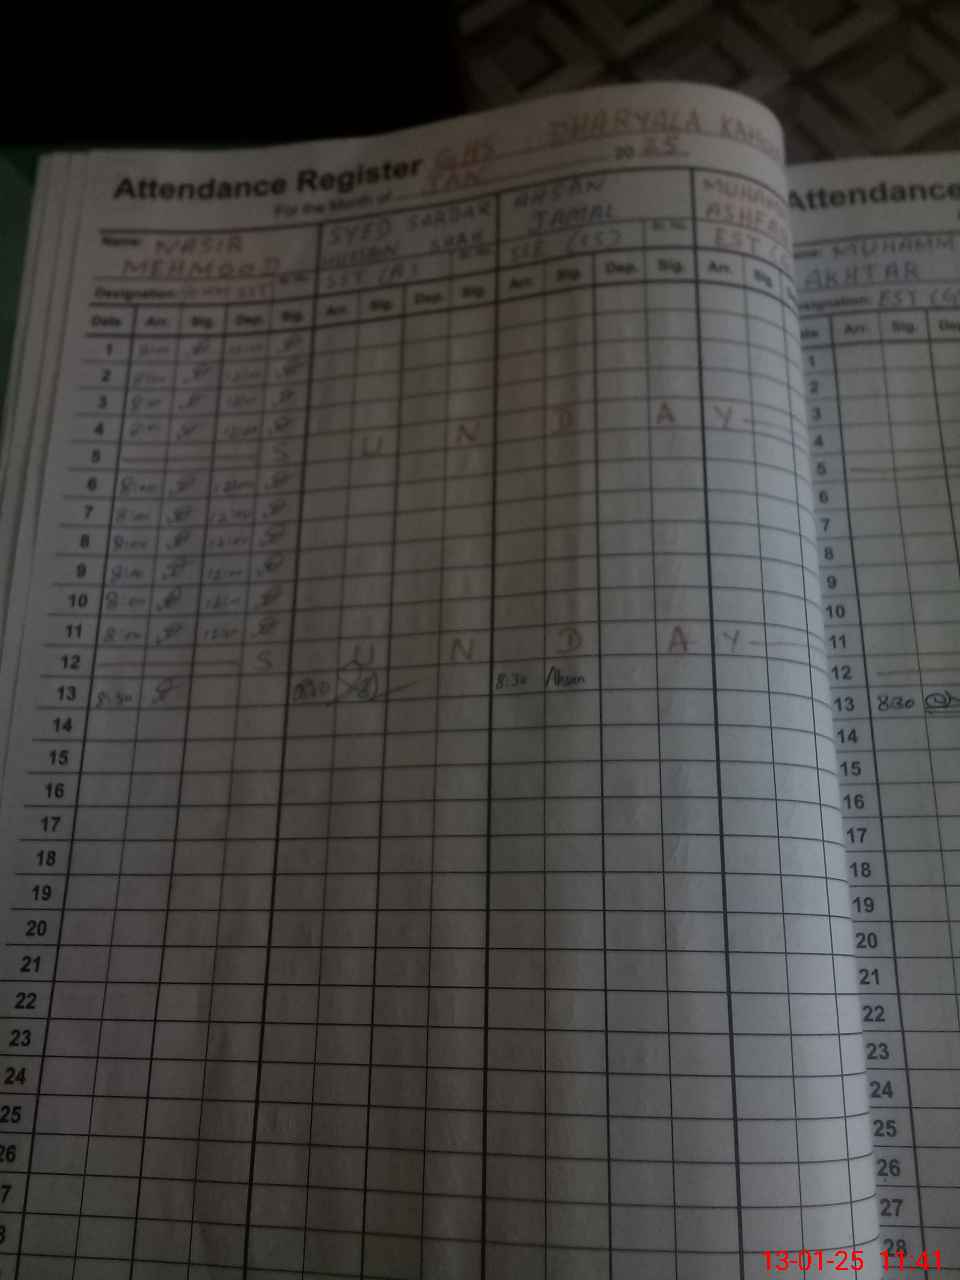 Attendance Register GHS DHARYALA
For the Month of JAN 20 25
Name: NASIR MEHMOOD
SYED SARDAR HUSSAIN SHAH
AHSAN JAMAL
Designation:
SST (A)
SSE (SS)
EST
Date Arr. Sig. Dep. Sig. Arr. Sig. Dep. Sig. Arr. Sig. Dep. Sig. Arr. Sig.
1 8:00 12:00
2 8:00 12:00
3 8:00 12:00
4 8:00 12:00
5 S U N D A Y
6 8:00 12:00
7 8:00 12:00
8 8:00 12:00
9 8:00 12:00
10 8:00 12:00
11 8:00 12:00
12 S U N D A Y
13 8:30 8:30 8:30 Ahsan
14
15
16
17
18
19
20
21
22
23
24
25
26
7
Attendance
MUHAMM
AKHTAR
EST
Arr. Sig.
1
2
3
4
5
6
7
8
9
10
11
12
13 8:30
14
15
16
17
18
19
20
21
22
23
24
25
26
27
28
13-01-25 11:41